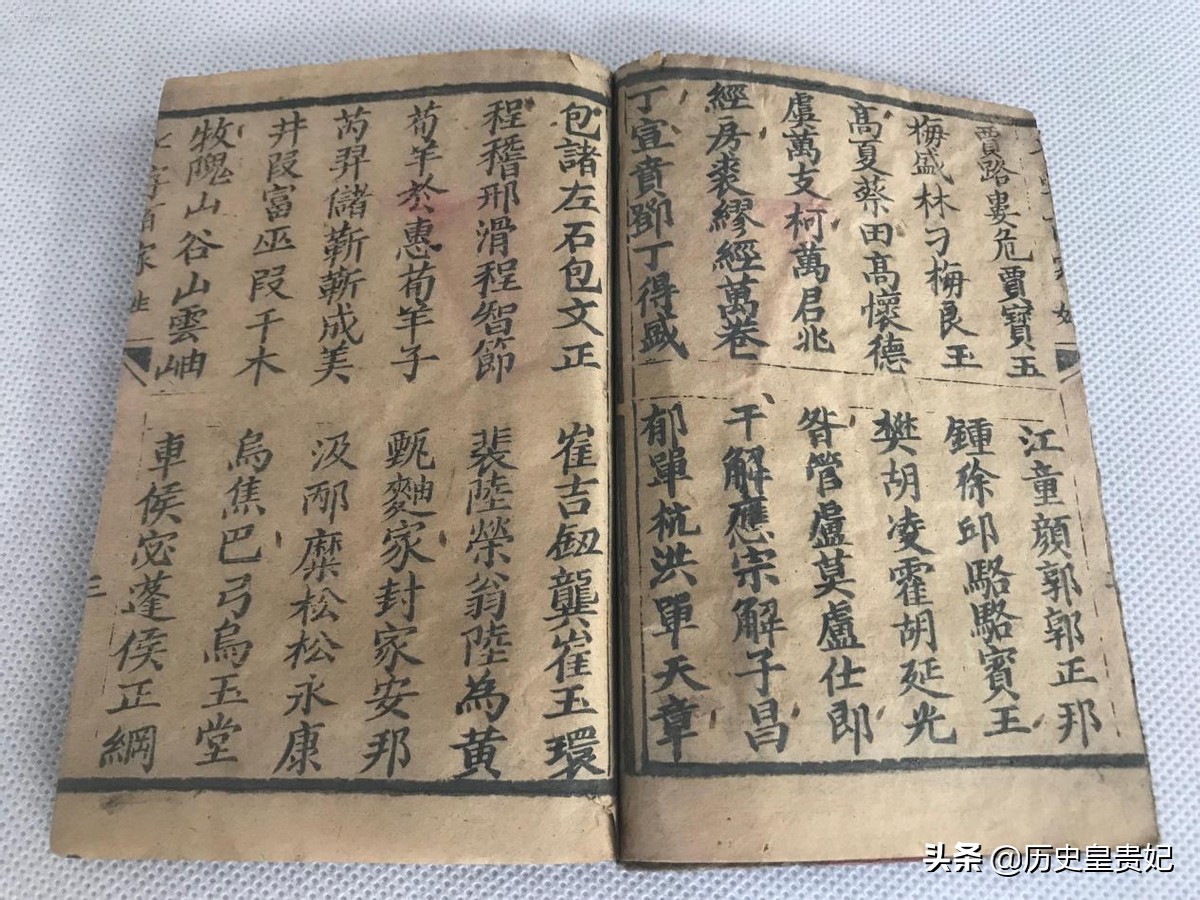 賈路婁危賈寶玉
江童顏郭郭正邦
梅盛林刁梅良玉
鍾徐邱駱駱賓王
高夏蔡田高懷德
樊胡凌霍胡延光
虞萬支柯萬君兆
昝管盧莫盧仕郎
經房裘繆經萬卷
干解應宗解子昌
丁宣賁鄧丁得盛
郁單杭洪單天章
包諸左石包文正
崔吉鈕龔崔玉環
程嵇邢滑程智節
裴陸榮翁陸為黃
荀羊於惠荀羊子
甄麯家封家安邦
芮羿儲靳靳成美
汲邴糜松松永康
井段富巫段干木
烏焦巴弓烏玉堂
牧隗山谷山雲岫
車侯宓蓬侯正綱
百家姓
三
头条 @历史皇贵妃